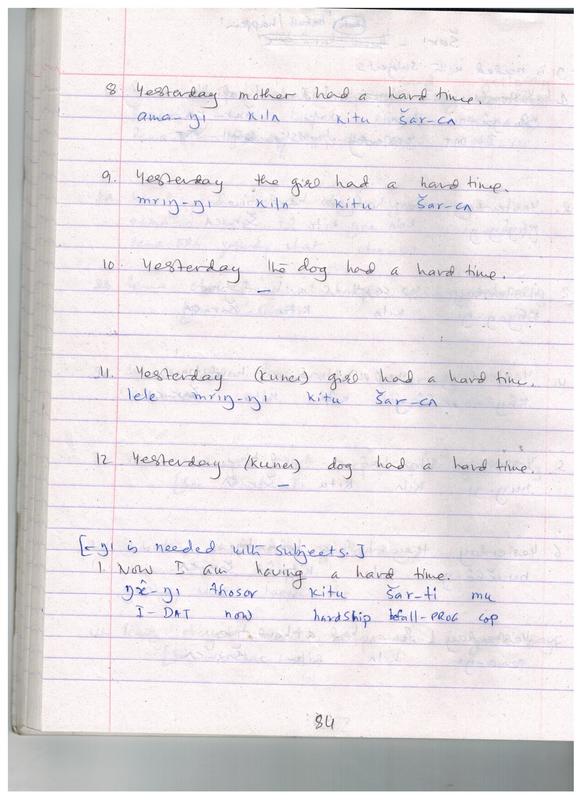 8 Yesterday mother had a hard time.
ama-ŋɩ kilʌ kitu šar-cʌ
9. Yesterday the girl had a hard time.
mrɩŋ-ŋɩ kilʌ kitu šar-cʌ
10. Yesterday the dog had a hard time.
—
11. Yesterday (kunei) girl had a hard time.
lele mrɩŋ-ŋɩ kitu šar-cʌ
12 Yesterday (kunei) dog had a hard time.
—
[-ŋɩ is needed with subjects.]
1. Now I am having a hard time.
kitu šar-ti mu
I-DAT now hardship befall-PROG cop
84